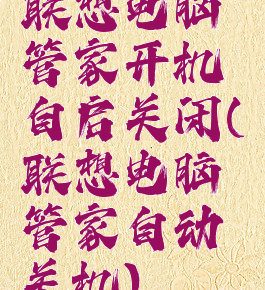 联想电脑
管家开机
自启关闭(
联想电脑
管家自动
关机)